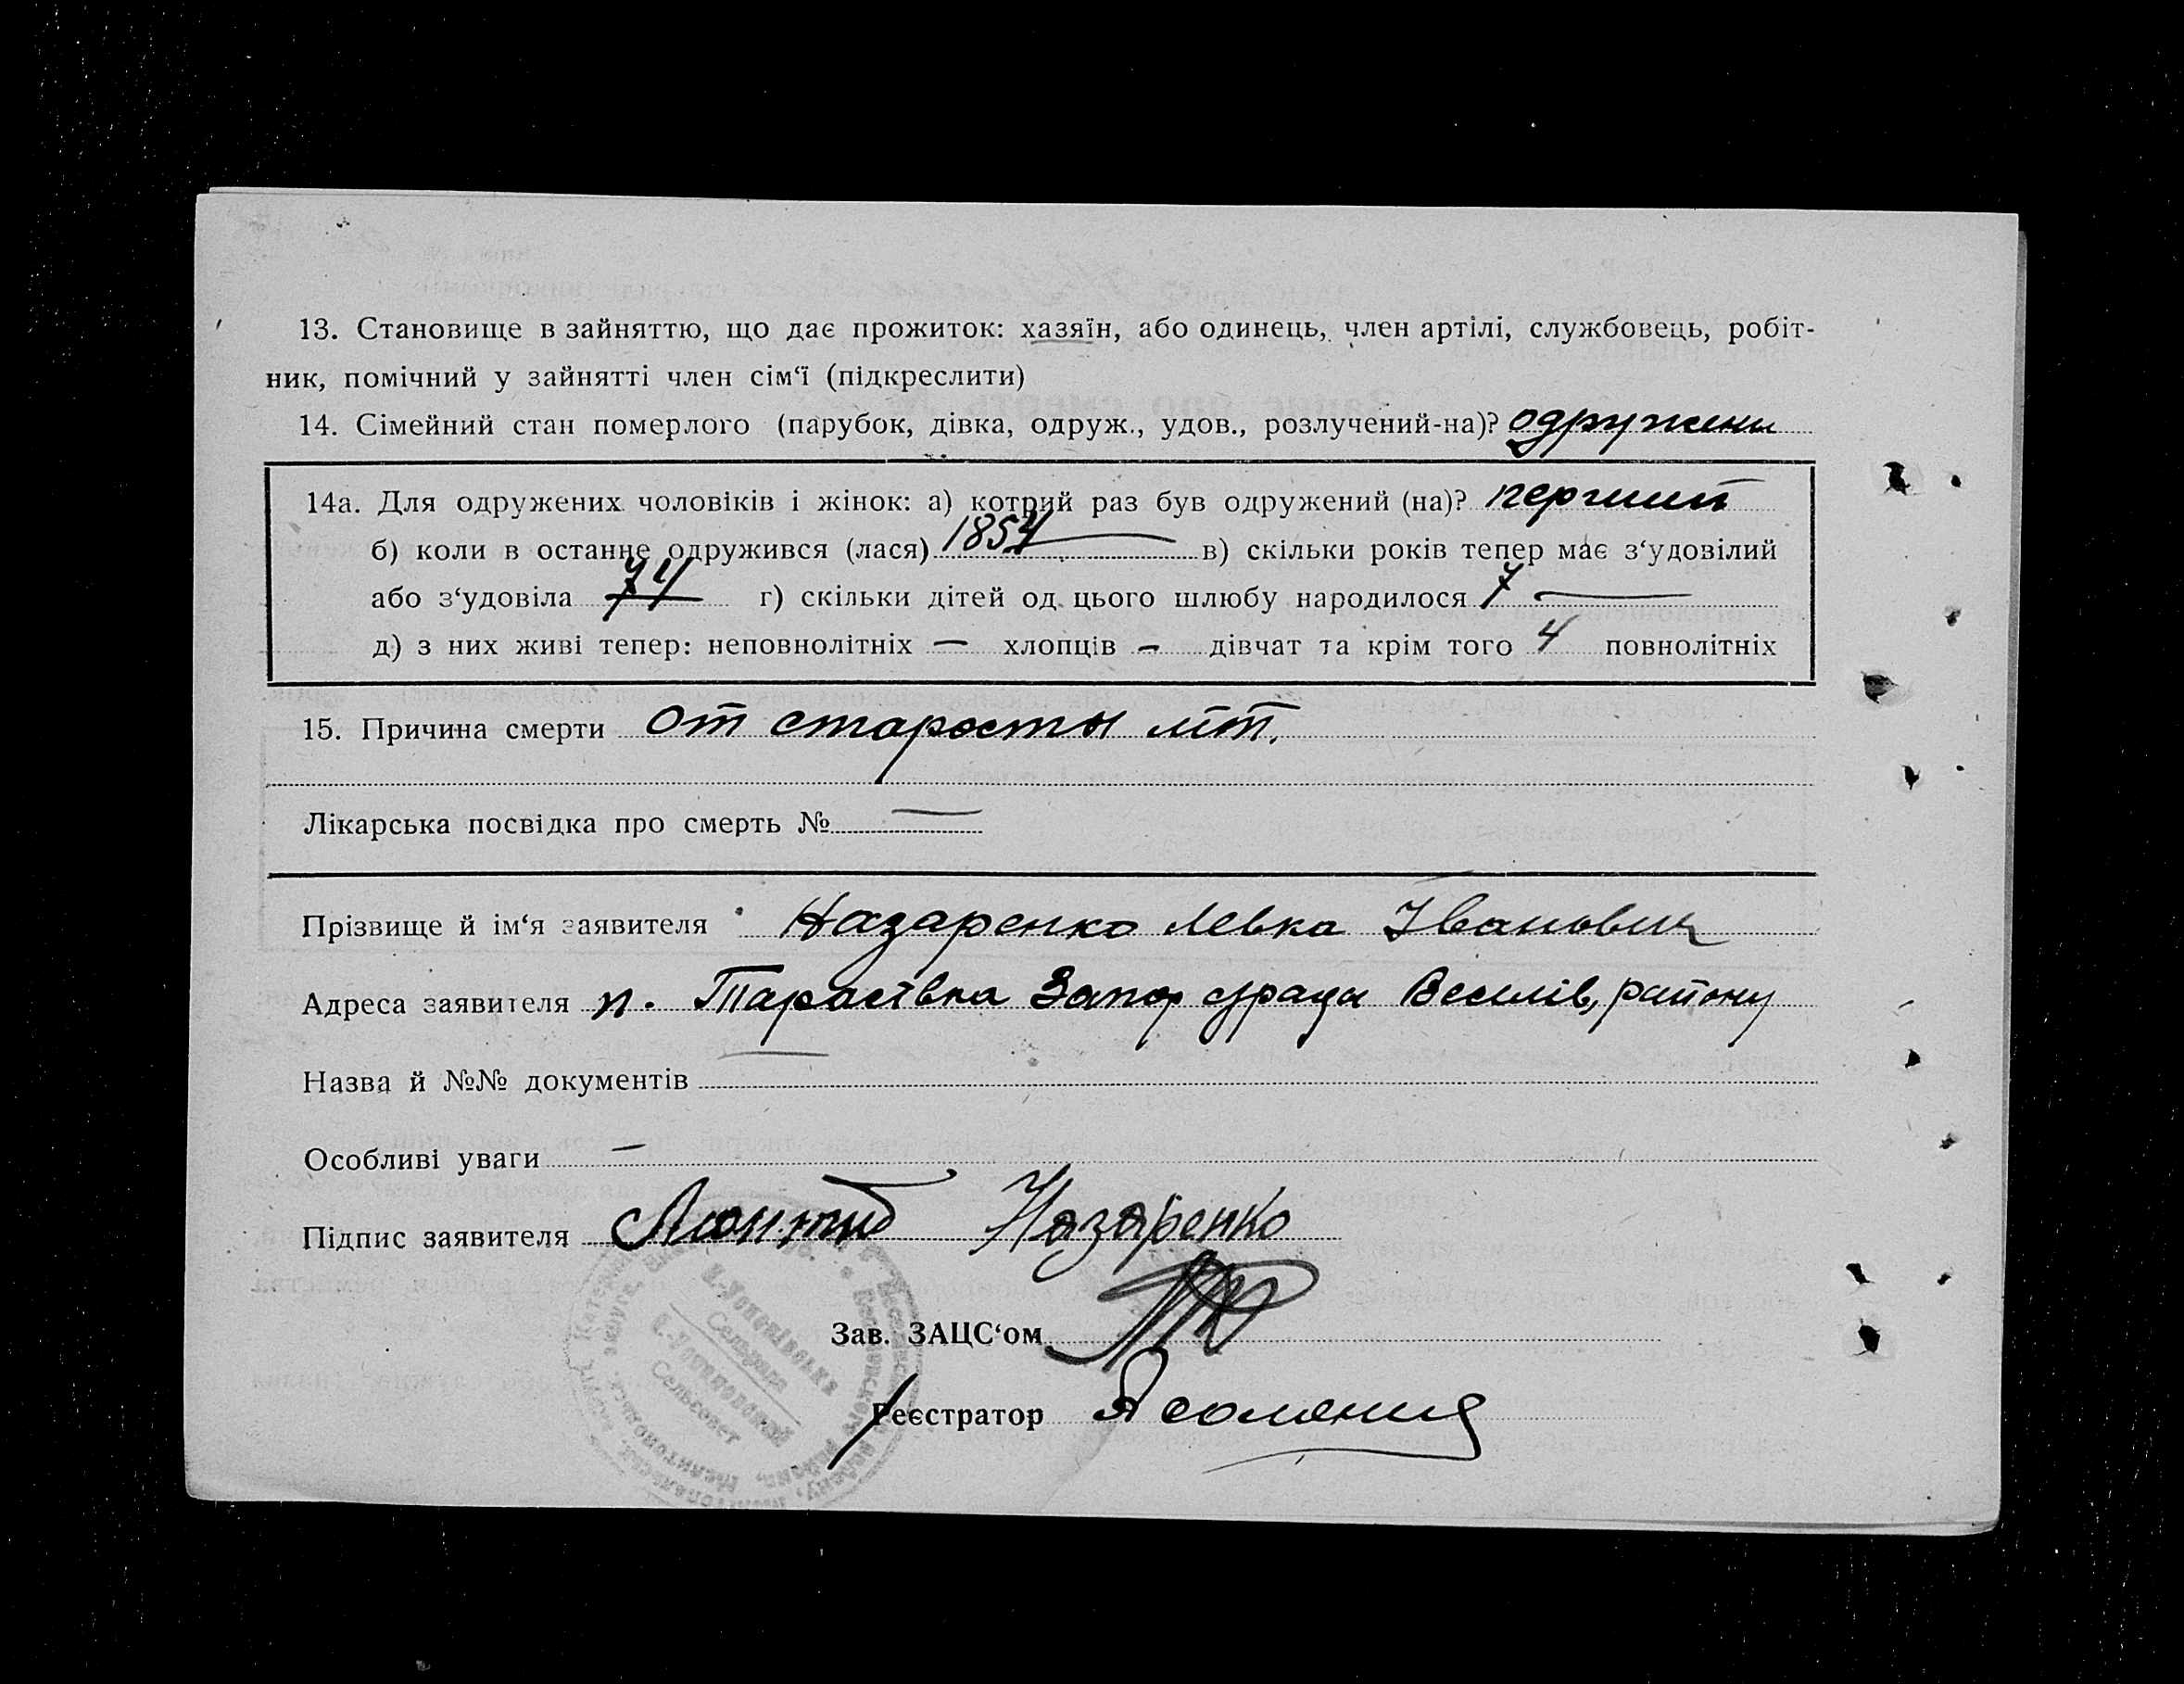 13. Становище в зайняттю, що дає прожиток: хазяїн, або одинець, член артілі, службовець, робіт-
ник, помічний у зайнятті член сім‘ї (підкреслити)
14. Сімейний стан померлого (парубок, дівка, одруж., удов., розлучений-на)? одружени
14а. Для одружених чоловіків і жінок: а) котрий раз був одружений (на)? перший
б) коли в останнє одружився (лася) 1854 в) скільки років тепер має з‘удовілий
або з‘удовіла г) скільки дітей од цього шлюбу народилося 7
д) з них живі тепер: неповнолітніх — хлопців - дівчат та крім того 4 повнолітніх
15. Причина смерти от старосты
Лікарська посвідка про смерть № —
Прізвище й ім‘я заявителя Назаренко Левка Іванович
Адреса заявителя п. Тарасівка Запор с/рады Веселів, району
Назва й №№ документів —
Особливі уваги —
Підпис заявителя Назаренко
Зав. ЗАЦС‘ом
Реєстратор
Сельсовет